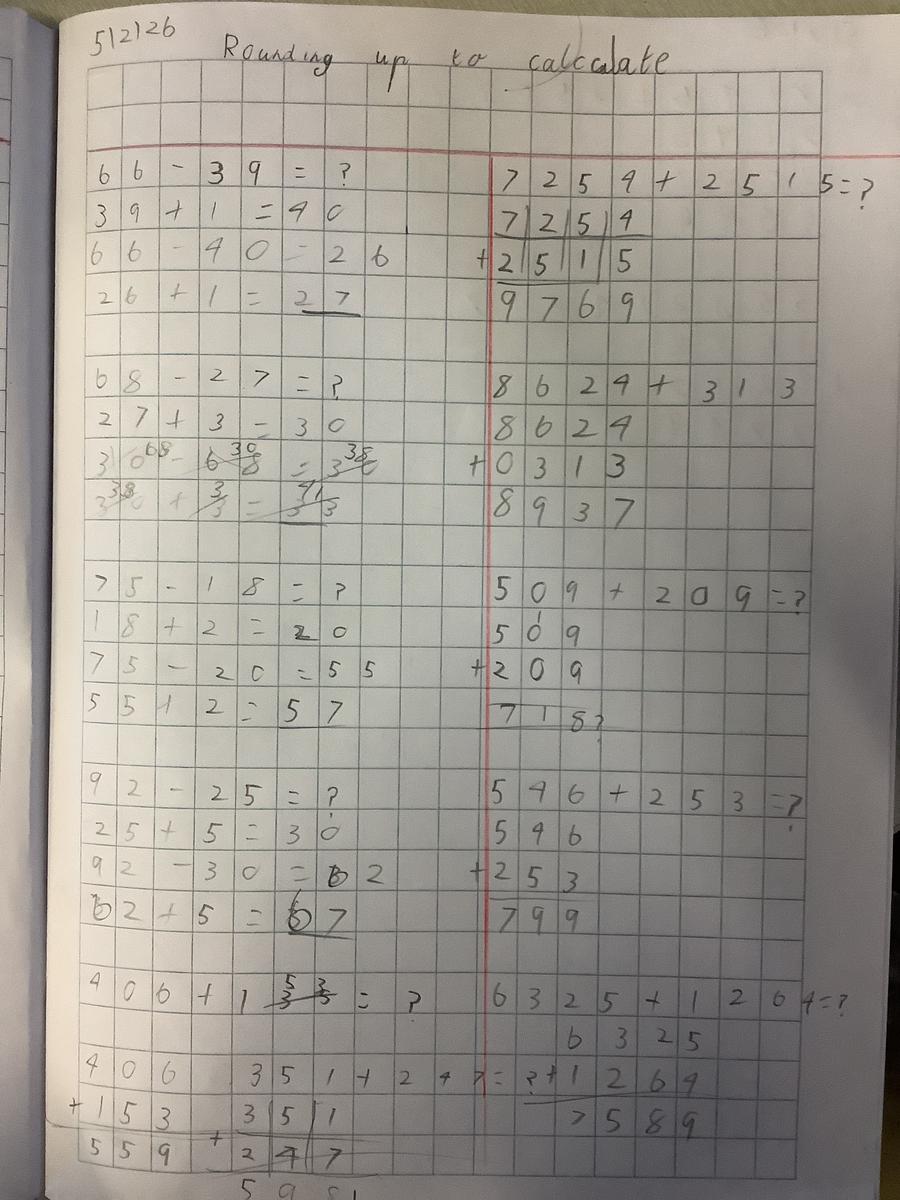 5/2/26
Rounding up to calculate
66 - 39 = ?
39 + 1 = 40
66 - 40 = 26
26 + 1 = 27
68 - 27 = ?
27 + 3 = 30
68 - 30 = 38
38 + 3 = 41
75 - 18 = ?
18 + 2 = 20
75 - 20 = 55
55 + 2 = 57
92 - 25 = ?
25 + 5 = 30
92 - 30 = 62
62 + 5 = 67
406 + 153 = ?
406
+153
559
351 + 247 = ?
351
+247
59
7254 + 2515 = ?
7254
+2515
9769
8624 + 313
8624
+0313
8937
509 + 209 = ?
1
509
+209
718?
546 + 253 = ?
546
+253
799
6325 + 1264 = ?
6325
+1264
7589